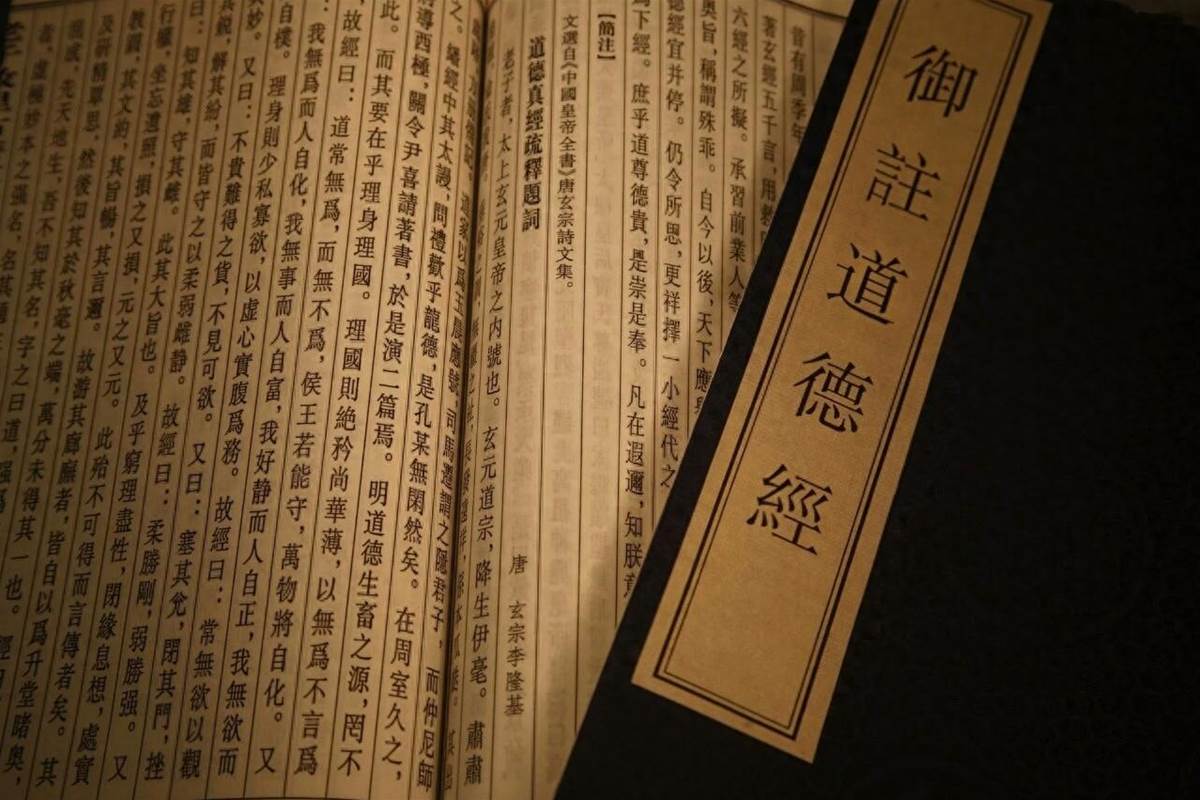 御註道德經
昔有周季年
著玄經五千言，用
六經之所擬。承習前業人等
奥旨，稱謂殊乖。自今以後，天下應
德經宜并停。仍令所思，更祥擇一小經代之
爲下經。庶乎道尊德貴，是崇是奉。凡在遐邇，知朕意
【簡注】
文選自《中國皇帝全書》唐玄宗詩文集。
道德真經疏釋題詞
唐 玄宗李隆基
老子者，太上玄元皇帝之内號也。玄元道宗，降生伊毫。肅肅
道家以爲玉晨應號，司馬遷謂之隱君子，而仲尼師
之。繙經中其太謾，問禮歡乎龍德，是孔某無閑然矣。在周室久之，
將導西極，關令尹喜請著書，於是演二篇焉。明道德生畜之源，罔不
此。而其要在乎理身理國。理國則絶矜尚華薄，以無爲不言爲
，故經曰：道常無爲，而無不爲，侯王若能守，萬物將自化。又
：我無爲而人自化，我無事而人自富，我好静而人自正，我無欲而
自樸。理身則少私寡欲，以虚心實腹爲務。故經曰：常無欲以觀
其妙。又曰：不貴難得之貨，不見可欲。又曰：塞其兌，閉其門，挫
其銳，解其紛，而皆守之以柔弱雌静。故經曰：柔勝剛，弱勝强。又
曰：知其雄，守其雌。此其大旨也。及乎窮理盡性，閉緣息想，處實
行權，坐忘遺照，損之又損，元之又元。此殆不可得而言傳者矣。其
教圓，其文約，其旨暢，其言邇。故游其廊廡者，皆自以爲升堂睹奥，
及研精覃思，然後知其於秋毫之端，萬分未得其一也。經曰
混成，先天地生，吾不知其名，字之曰道，强爲
者，虛極妙本之强名，名其通